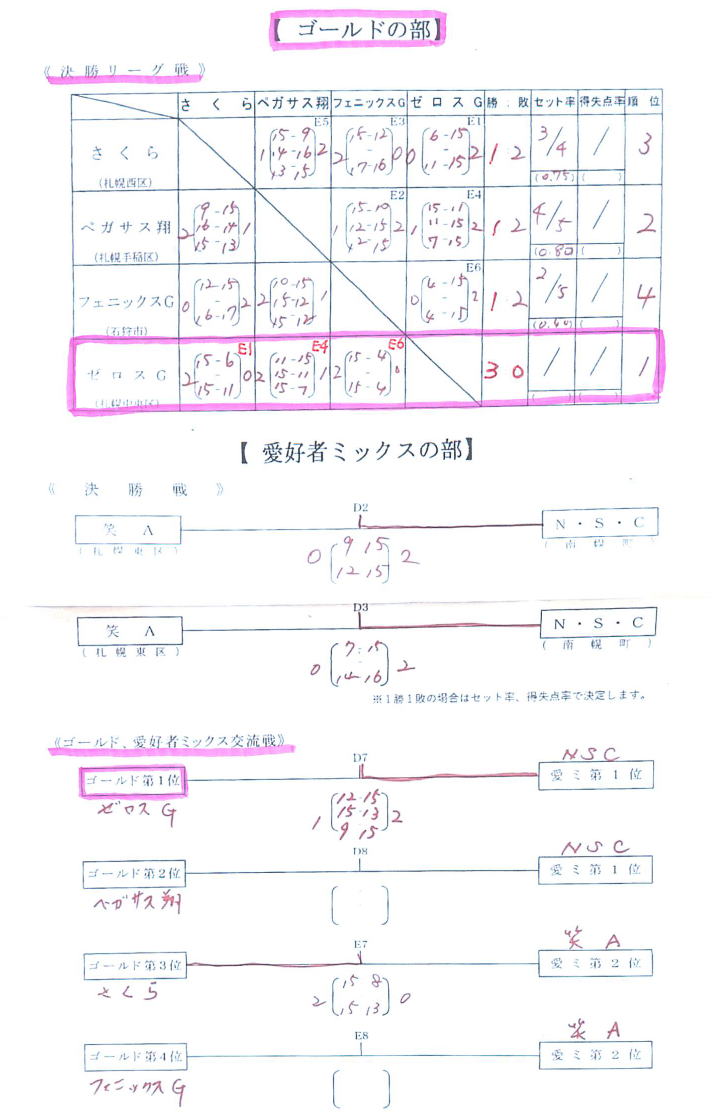 【 ゴールドの部】
《決勝リーグ戦》
さくら ペガサス翔 フェニックスG ゼロスG 勝:敗 セット率 得失点率 順位
さくら
(札幌西区)
E5
1 15-9 14-16 13-15 2
E3
2 15-12 - 17-16 0
E1
0 6-15 - 11-15 2
1 2
3/4
(0.75) ( )
/
3
ペガサス翔
(札幌手稲区)
2 9-15 16-14 15-13 1
E2
1 15-10 12-15 12-15 2
E4
1 15-11 11-15 7-15 2
1 2
4/5
(0.80) ( )
/
2
フェニックスG
(石狩市)
0 12-15 - 16-17 2
2 10-15 15-12 15-12 1
E6
0 4-15 - 4-15 2
1 2
2/5
(0.40) ( )
/
4
ゼロスG
E1
2 15-6 - 15-11 0
E4
2 11-15 15-11 15-7 1
E6
2 15-4 - 15-4 0
3 0
/
( ) ( )
/
1
【 愛好者ミックスの部】
《 決勝戦 》
D2
笑 A N・S・C
(札幌東区) (南幌町)
0 9 15 2
12 15
D3
笑 A N・S・C
(札幌東区) (南幌町)
0 7:15 2
14-16
※1勝1敗の場合はセット率、得失点率で決定します。
《ゴールド、愛好者ミックス交流戦》
D7
NSC
ゴールド第1位 愛ミ第1位
ゼロスG
12-15
1 15-13 2
9 15
D8
NSC
ゴールド第2位 愛ミ第1位
ペガサス翔
E7
笑 A
ゴールド第3位 愛ミ第2位
さくら
15 8
2 15 13 0
E8
笑 A
ゴールド第4位 愛ミ第2位
フェニックスG